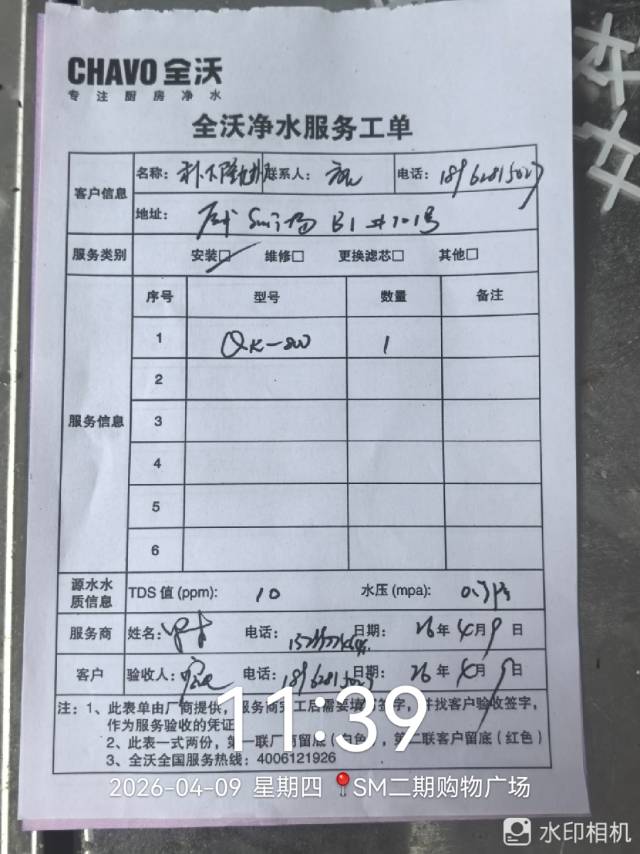 CHAVO 全沃
专注厨房净水
全沃净水服务工单
客户信息
名称: 联系人: 电话:
地址: B1
服务类别 安装□ 维修□ 更换滤芯□ 其他□
服务信息
序号 型号 数量 备注
1 QK-800 1
2
3
4
5
6
源水水质信息 TDS 值 (ppm): 10 水压 (mpa):
服务商 姓名: 电话: 日期: 26 年 4 月 9 日
客户 验收人: 电话: 日期: 26 年 4 月 9 日
注: 1、此表单由厂商提供, 服务商完工后需要填写签字, 并找客户验收签字,
作为服务验收的凭证
2、此表一式两份, 第一联厂商留底 (白色), 第二联客户留底 (红色)
3、全沃全国服务热线: 4006121926
11:39
2026-04-09 星期四 SM二期购物广场
水印相机